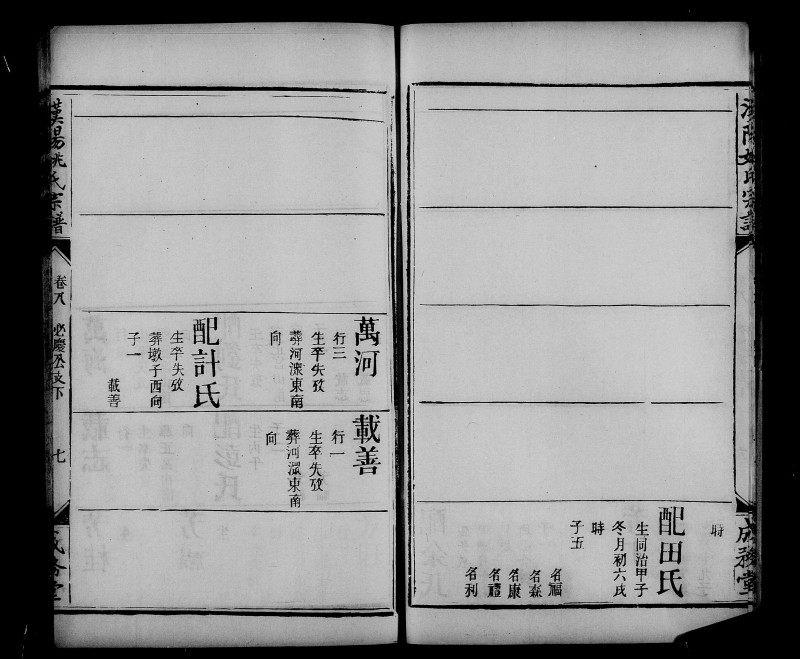 漢陽姚氏宗譜
成務堂
時
配田氏
生同治甲子
冬月初六戌
時
子五
名福
名森
名康
名禮
名利
萬河
行三
生卒失攷
葬河深東南
向
配計氏
生卒失攷
葬墩子西向
子一
載善
載善
行一
生卒失攷
葬河深東南
向
漢陽姚氏宗譜
卷八
必慶公支下
七
成務堂